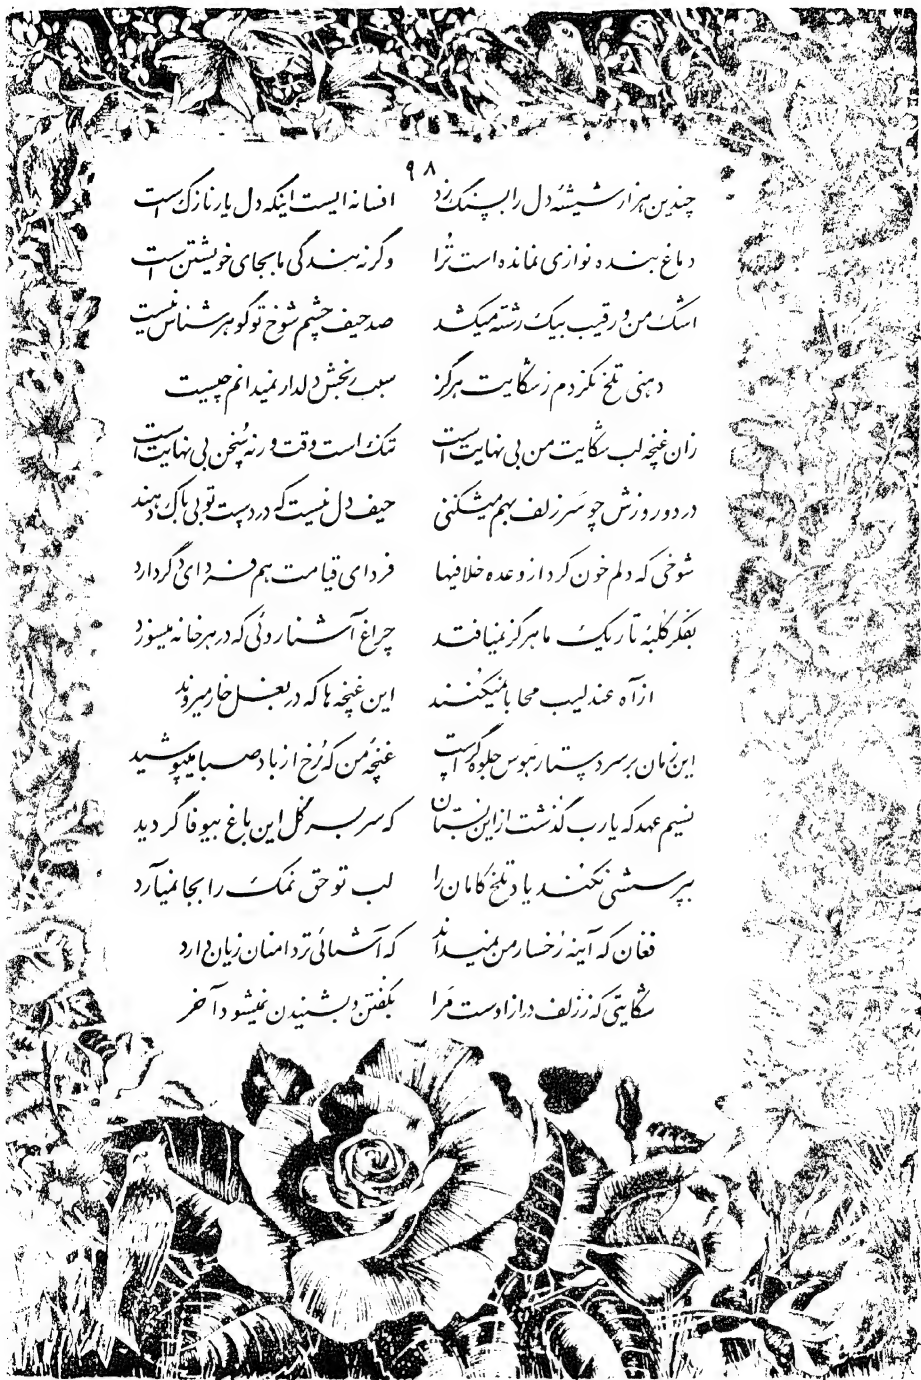 ۹۸
چندین هزار شیشهٔ دل را بسنگ زد افسانه ایست اینکه دل یار نازک است
دماغ بنده نوازی نمانده است ترا وگرنه بندگی ما بجای خویشتن است
اشک من و رقیب بیک رشته میکشد صد حیف چشم شوخ تو گوهر شناس نیست
دهنی تلخ نکردم ز شکایت هرگز سبب رنجش دلدار نمیدانم چیست
زان غنچه لب شکایت من بی نهایت است تنک است وقت ورنه سخن بی نهایت است
در دور وزش چو سر زلف بهم میشکنی حیف دل نیست که در دست تو بی باک دهند
شوخی که دلم خون کرد از وعده خلافیها فردای قیامت هم فردای دگر دارد
بفکر کلبهٔ تاریک ما هرگز نمیافتد چراغ آشنا روئی که در هر خانه میسوزد
از آه عندلیب محابا نمیکنند این غنچه ها که در بغل خار میروند
این زمان بر سر دستار هوس جلوه گر است غنچهٔ من که رخ از باد صبا میپوشید
نسیم عهد که یارب گذشت از این بستان که سر بسر گل این باغ بیوفا گردید
بپرسشی نکند یاد تلخ کامان را لب تو حق نمک را بجا نمیآرد
فغان که آینه رخسار من نمیداند که آشنائی تردامنان زیان دارد
شکایتی که ز زلف دراز اوست مرا بگفتن و بشنیدن نمیشود آخر